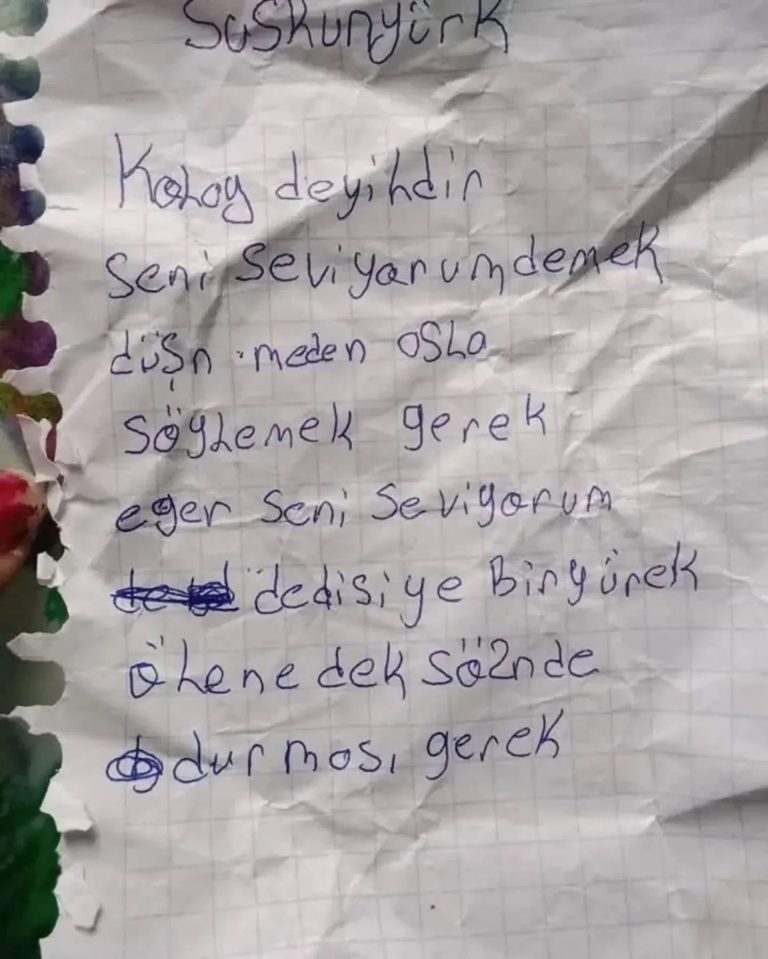 Suskunyürk
Kolay deyildir
Seni Seviyorumdemek
düşn meden asla
söylemek gerek
eger Seni Seviyorum
dedisiye Biryürek
ölene dek söznde
durması gerek